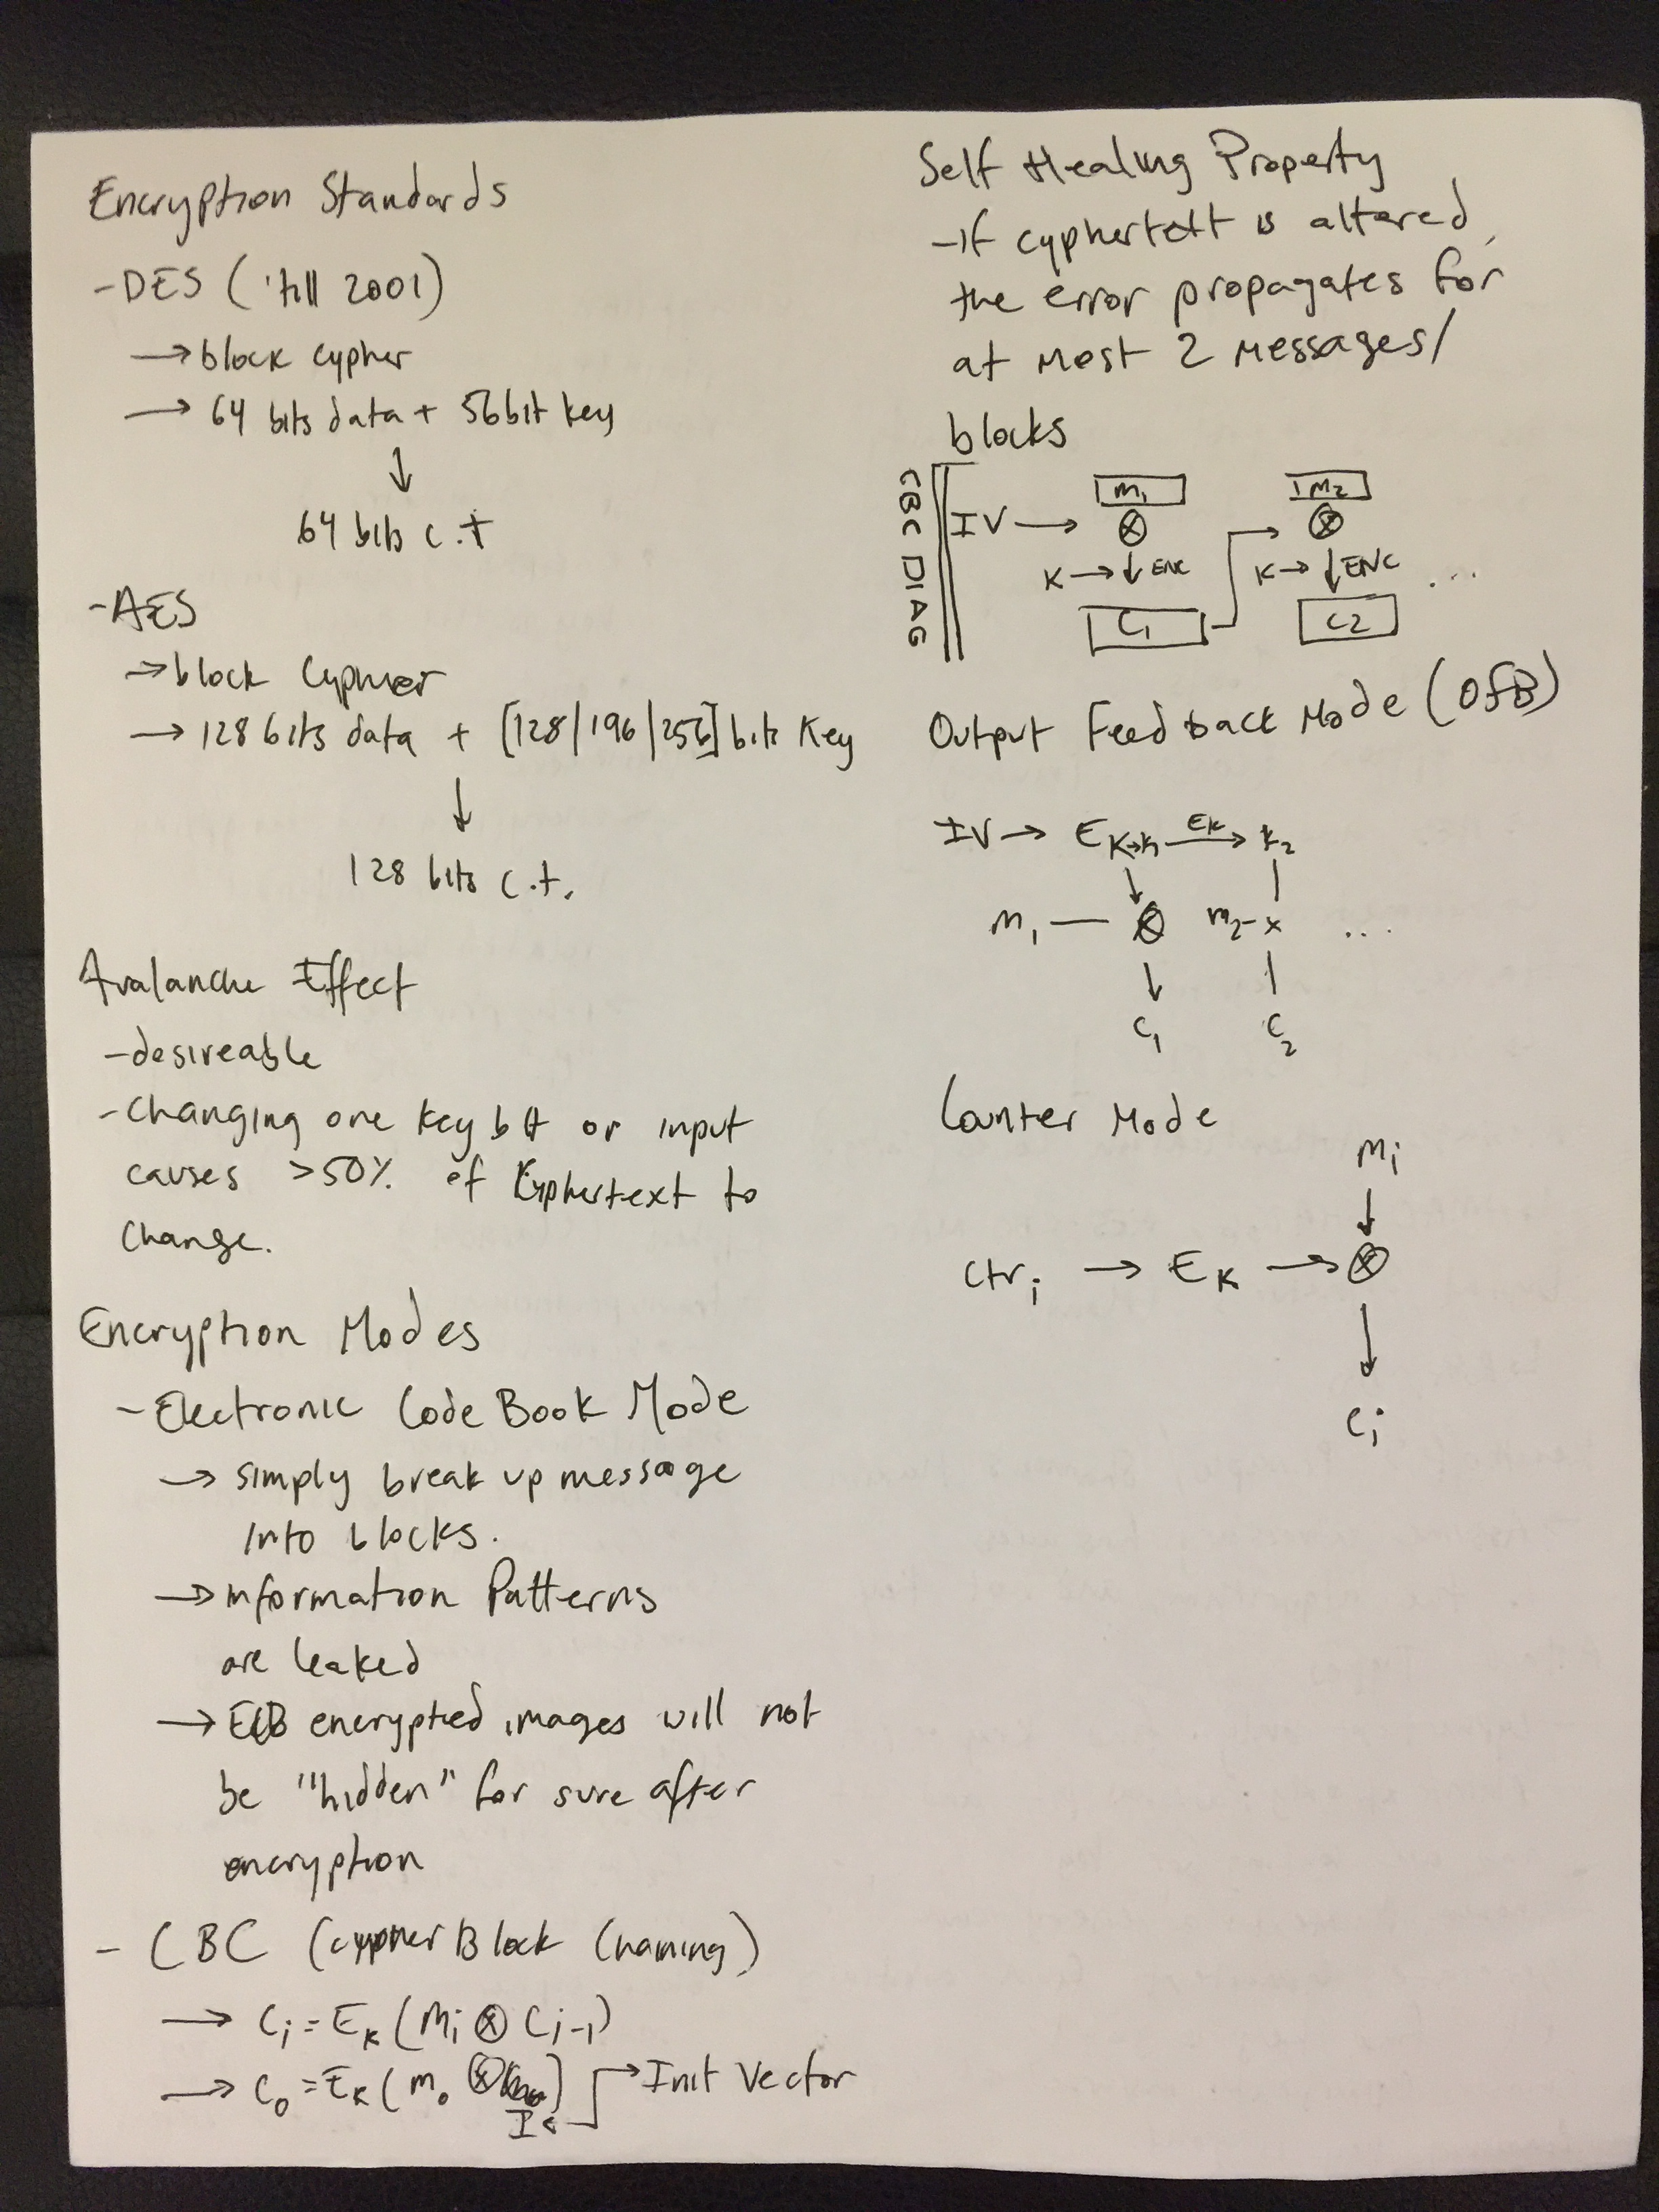 Encryption Standards
- DES ('till 2001)
→ block cypher
→ 64 bits data + 56 bit key
↓
64 bits c.t
- AES
→ block cypher
→ 128 bits data + [128/196/256] bit key
↓
128 bits c.t.
Avalanche Effect
- desireable
- Changing one key bit or input
causes >50% of Cyphertext to
change.
Encryption Modes
- Electronic Code Book Mode
→ simply break up message
into blocks.
→ Information Patterns
are leaked
→ ECB encrypted images will not
be "hidden" for sure after
encryption
- CBC (cypher Block Chaining)
→ Ci = EK (Mi ⊗ Ci-1)
→ C0 = EK (m0 ⊗ I) → Init Vector
Self Healing Property
- If cyphertext is altered,
the error propagates for
at most 2 messages/
blocks
CBC DIAG
m1 m2
IV → ⊗ → ⊗
K → ↓ ENC K → ↓ ENC ...
C1 C2
Output Feedback Mode (OFB)
IV → EK → k1 EK → k2
↓ |
m1 — ⊗ m2 - x ...
↓ |
C1 C2
Counter Mode
mi
↓
ctri → EK → ⊗
↓
Ci